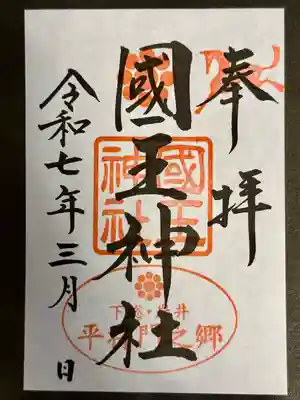 奉拝
國王神社
令和七年三月 日
國王神社
下総・岩井
平将門之郷